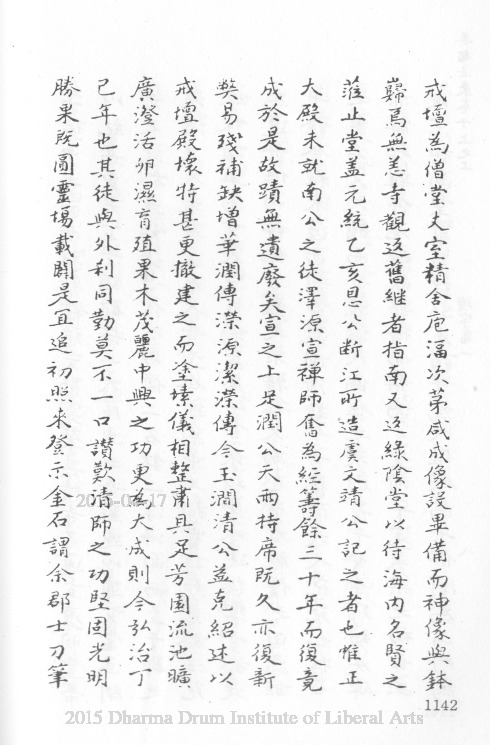 戒壇為僧堂丈室精舍庖湢次第咸成像設畢備而神像與鉢
巋焉無恙寺觀返舊継者指南又返綠陰堂以待海内名賢之
蒞止堂盖元統乙亥恩公断江所造虞文靖公記之者也惟正
大殿未就南公之徒澤源宣禅師奮為經籌餘三十年而復竟
成於是故蹟無遺廢矣宣之上足潤公天雨持席既久亦復新
獘易殘補缺增華潤傳濴源潔濴傳今玉澗清公益克紹述以
戒壇殿壊特甚更撤建之而塗塐儀相整肅具足芳園流池曠
廣澄活卵濕育殖果木茂麗中興之功更為大成則今弘治丁
巳年也其徒與外刹同勤莫不一口讃歎清師之功堅固光明
勝果既圓靈場載闢是宜追初照来登示金石謂余郡士刀筆
1142
2015 Dharma Drum Institute of Liberal Arts